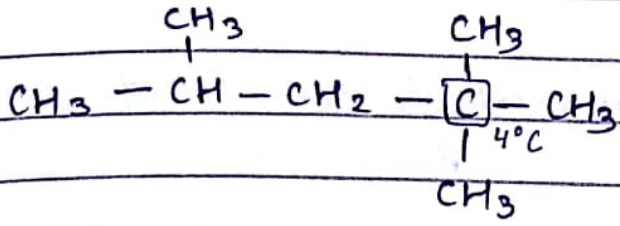 CH3 CH3
CH3 - CH - CH2 - C - CH3
4°C
CH3